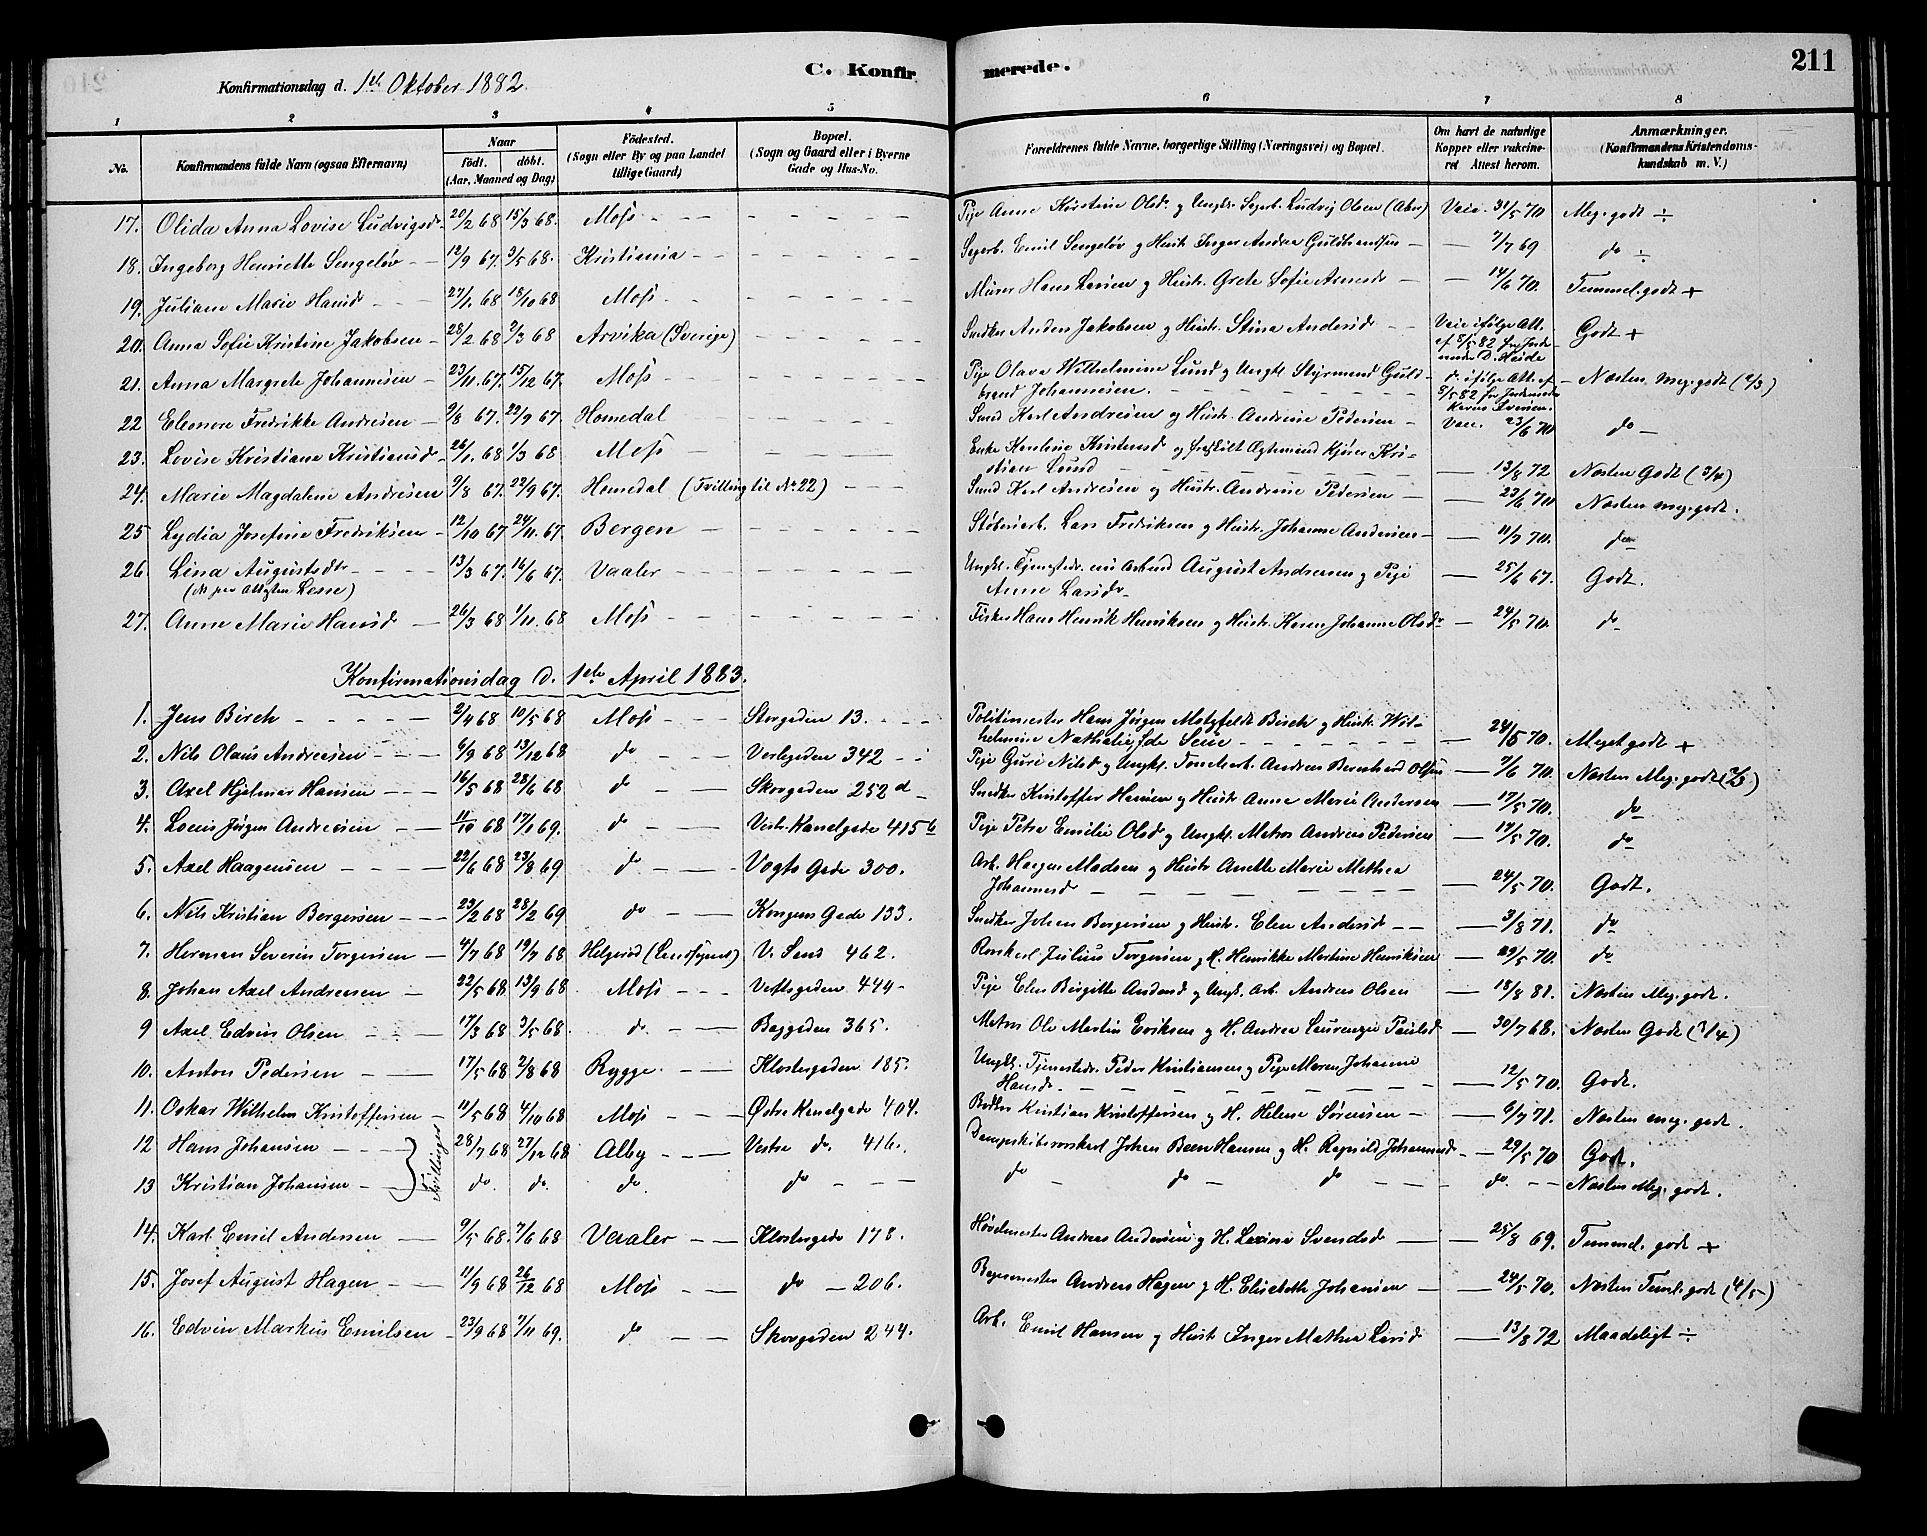 211
C. Konfirmerede.
Konfirmationsdag d. 1ste Oktober 1882.
1 2 3 4 5 6 7 8
No. Konfirmandens fulde Navn (ogsaa Efternavn) Naar födt. döbt. (Aar, Maaned og Dag) Födested. (Sogn eller By og paa Landet tillige Gaard) Bopæl. (Sogn og Gaard eller i Byerne Gade og Hus-No. Forældrenes fulde Navne, borgerlige Stilling (Næringsvei) og Bopæl. Om havt de naturlige Kopper eller vakcineret Attest herom. Anmærkninger. (Konfirmandens Kristendomskundskab m. V.)
17. Olida Anna Lovise Ludvigsdr 20/2 68 15/3 68. Moss Pije Anne Kirstine Olsdr. g Ungk. Ludvig Olsen Vacc. 31/5 70 Meg. godt ÷
18. Ingeborg Henriette Sengeløv 12/9 67. 3/5 68. Kristiania Emil Sengeløv g Hustr. Inger Andrea Guldbrandsen 7/7 69 do ÷
19. Juliane Marie Hansdr 27/1 68 18/10 68 Moss Murer Hans Larsen g Hustr. Grete Sofie Arnesdr 14/6 70. Temmel. godt +
20. Anna Sofie Kristine Jakobsen 28/2 68 2/3 68 Arvika (Sverige) Snedker Anders Jakobsen g Hustr. Stina Andersdr Vacc ifølge Att. af 8/5 82 fra Jordemoder D. Heide Godt +
21. Anna Margrete Johannesen 23/11 67. 15/12 67. Moss Pije Olava Wilhelmine Lund g Ungk. Styrmand Guldbrand Johannesen. do ifølge Att. af 8/5 82 fra Jordemoder Næsten Meg. godt (2/3)
22 Eleonore Fredrikke Andresen 9/8 67. 22/9 67. Homedal Karl Andresen g Hustr. Andrine Pedersen Vacc. 23/6 70 do
23. Lovise Kristiane Kristiansdr 26/1 68 1/3 68 Moss Enke g fraskilt Kristian Lund 13/8 72 Næsten Godt (3/4)
24. Marie Magdalene Andresen 9/8 67. 22/9 67. Homedal (Tvilling til No. 22) Karl Andresen g Hustr. Andrine Pedersen 23/6 70 Næsten meg. godt.
25 Lydia Josefine Fredriksen 12/10 67 24/11 67. Bergen Støberiarb. Lars Fredriksen g Hustr. Johanne Andersen 11/7 70. do
26. Lina Augustsdtr 13/3 67. 16/6 67. Vaaler Ungk. August Andresen g Pije Anne Larsdr 25/6 67. Godt.
27. Anne Marie Hansdr 26/3 68 1/11 68 Moss Fisker Hans Henrik Henriksen g Hustr. Karen Johanne Olsdr 24/5 70. do
Konfirmationsdag d. 1ste April 1883.
1. Jens Birch 2/4 68 10/5 68 Moss Storgaden 13. Politimester Hans Jørgen Motzfeldt Birch g Hustr. Wilhelmine Nathalie 24/5 70. Meget godt +
2. Nils Olaus Andresen 6/9 68 13/12 68 do Verlegaden 342 Pije Guri Nilsdr g Ungk. Tømmerarb. Andreas Bernhard Olsen 7/6 70. Næsten Meg. godt (2/3)
3. Axel Hjelmar Hansen 16/5 68 28/6 68 do Skovgaden 252 d Snedker Kristoffer Hansen g Hustr. Anne Marie Andersen 17/5 70. do
4. Louis Jørgen Andresen 11/10 68 17/1 69. do Vestr. Kanalgade 415 b Pije Petra Emilie Olsdr g Ungk. Matros Andreas Pedersen 17/5 70. do
5. Axel Haagensen 22/6 68 23/8 69 do Vogts Gade 300. Arb. Haagen Madsen g Hustr. Anette Marie Mathea Johannesdr 24/5 70. Godt.
6. Nils Kristian Borgersen 23/2 68 28/2 69 do Kongens Gade 133. Snedker Johan Borgersen g Hustr. Elen Andersdr 3/8 71. do
7. Herman Severin Torgersen 4/7 68 19/7 68 Helgerød V. Sand 462. Rorskarl Julius Torgersen g H. Henrikke Martine Henriksen 29/5 70. do
8. Johan Axel Andresen 22/5 68 13/9 68. Moss 444 Pije Elen Birgitte g Ungk. Arb. Andreas Olsen 18/8 81. Næsten Meg. godt.
9 Axel Edvin Olsen 17/3 68 3/5 68 do Baggaden 365. Matros Ole Martin Eriksen g H. Andrea Laurenzie Paulsdr 30/7 68. Næsten Godt (3/4)
10. Anton Pedersen 17/5 68 2/8 68 Rygge Klostergaden 185. Ungk. Tjenestedr. Peder Kristiansen g Pije Maren Johanne Hansdr. 12/5 70. Godt.
11. Oskar Wilhelm Kristoffersen 11/5 68 4/10 68 Moss Østre Kanalgade 404. Kristian Kristoffersen g H. Helene Sørensen 6/7 71. Næsten meg. godt.
12 Hans Johansen Tvillinger 28/7 68 27/12 68 Alby Vestre do. 416. Dampskibsrorskarl Johan Been Hansen g H. Regnild Johannesdr 29/5 70 Godt.
13 Kristian Johansen do. do. do. do do do do do. Næsten Meg. godt.
14. Karl Emil Andersen 9/5 68. 7/6 68 Vaaler Klostergade 178. Høvlemester Andreas Andersen g H. Lovise Svendsdr 25/8 69. Temmel. godt +
15. Josef August Hagen 11/9 68 26/12 68 Moss do 206. Bagermester Andreas Hagen g H. Elisabeth Johansen 24/5 70. Næsten Teml. godt (4/5)
16. Edvin Markus Emilsen 23/9 68 7/11 69. do Skovgaden 244. Arb. Emil Hansen g Hustr. Inger Mathea Larsdr 13/8 72 Maadeligt ÷